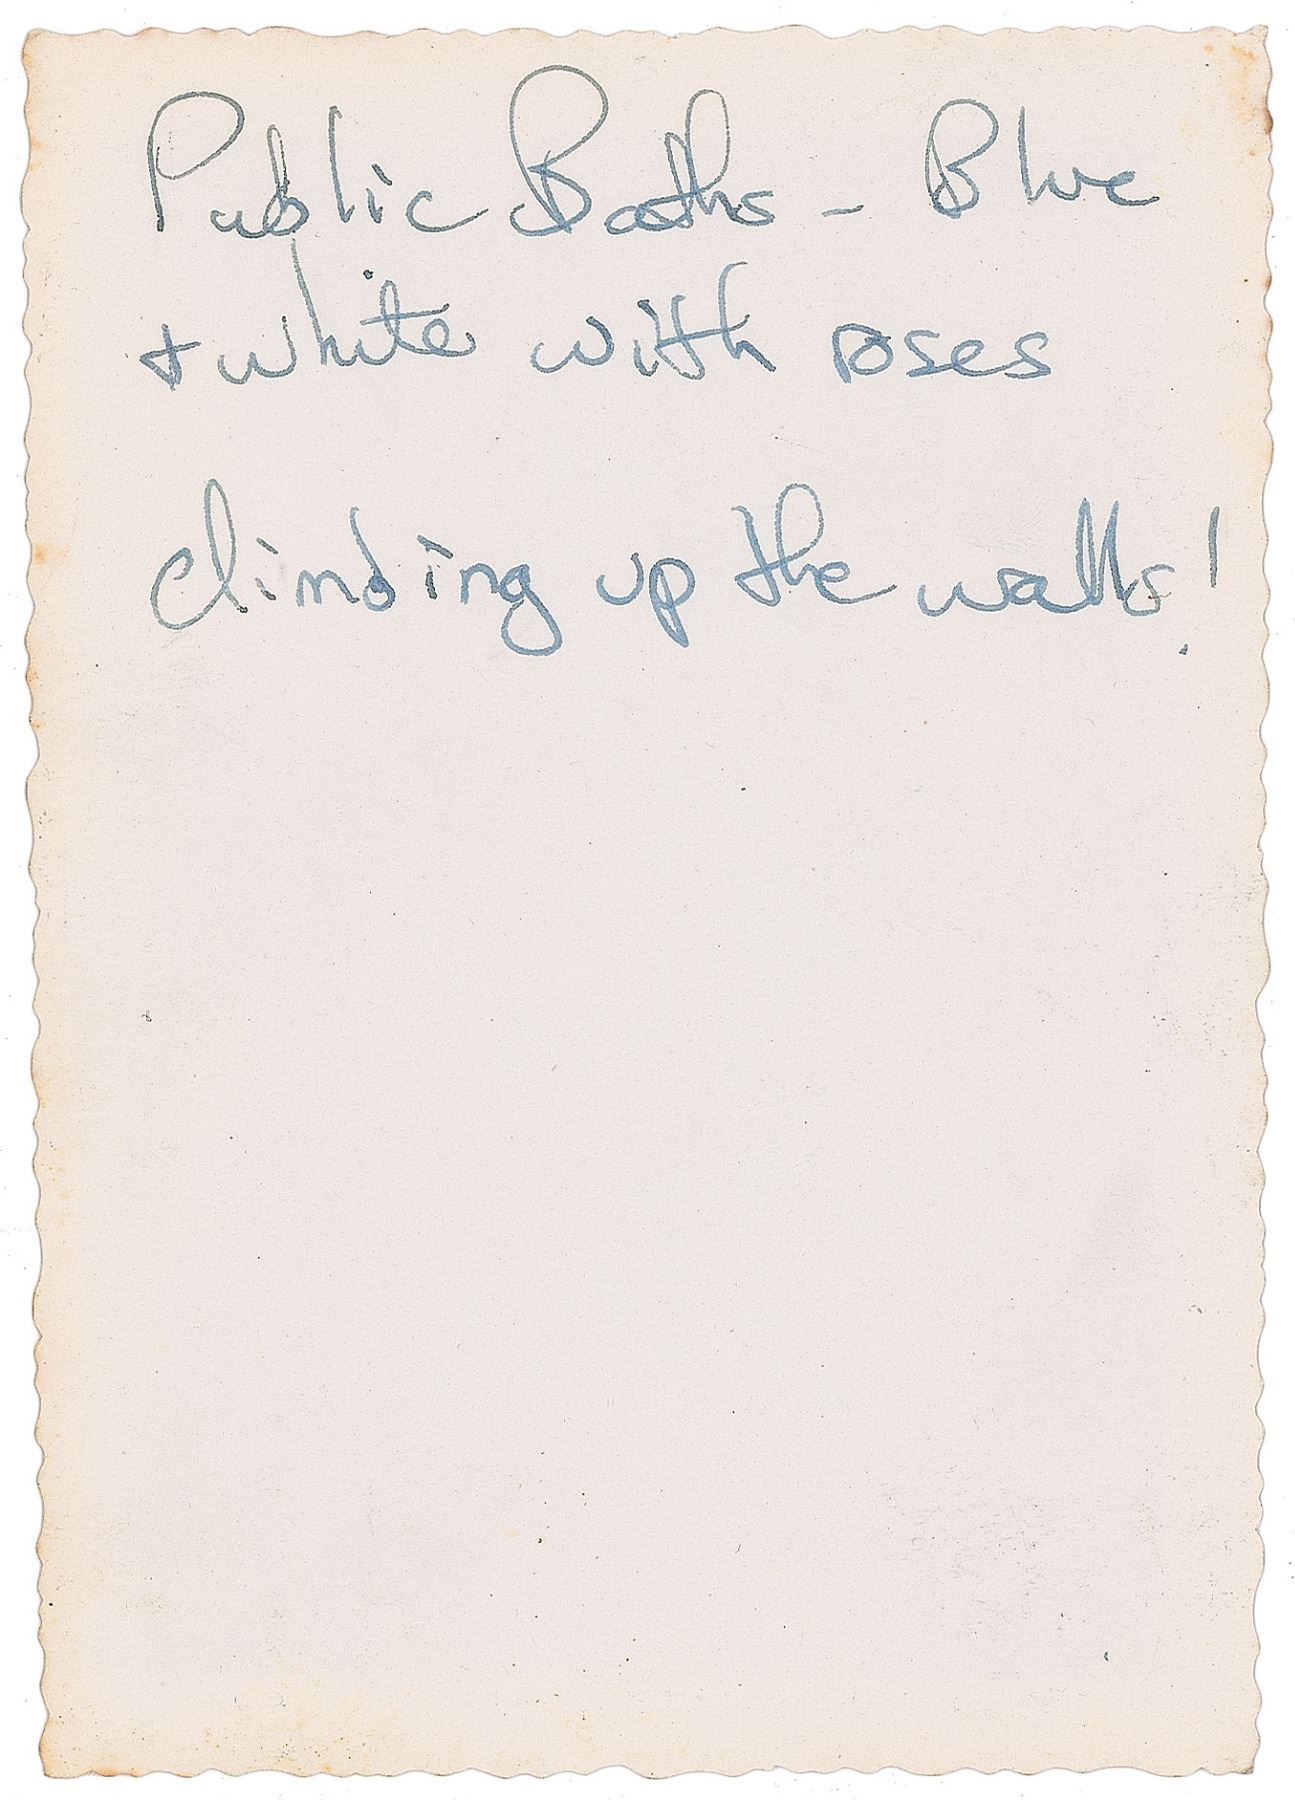 Public Baths - Blue
+ white with roses
climbing up the walls!